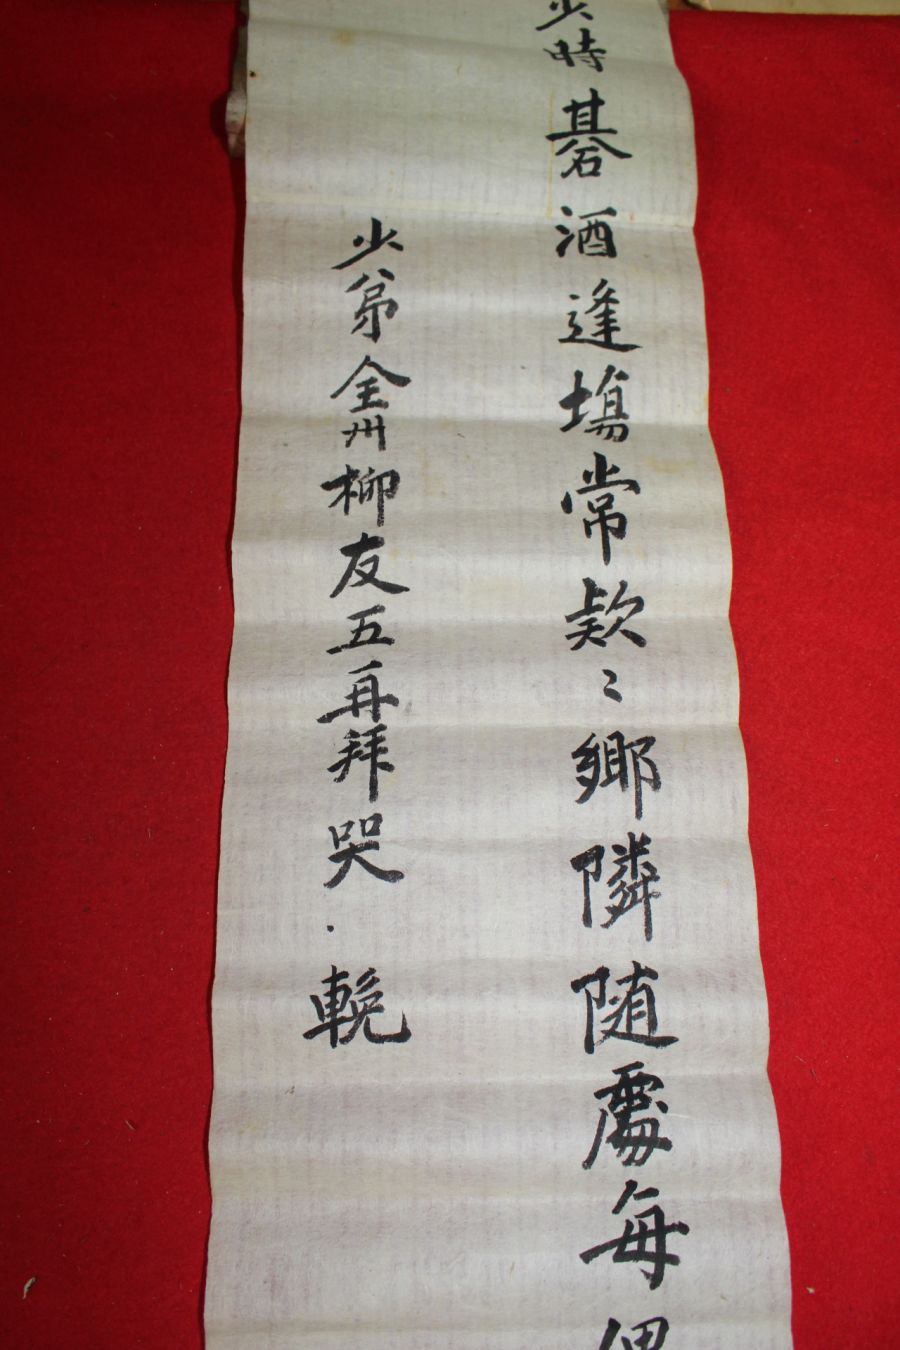 少時碁酒逢塲常欵〻鄉隣随處每偶
少弟全州柳友五再拜哭.輓